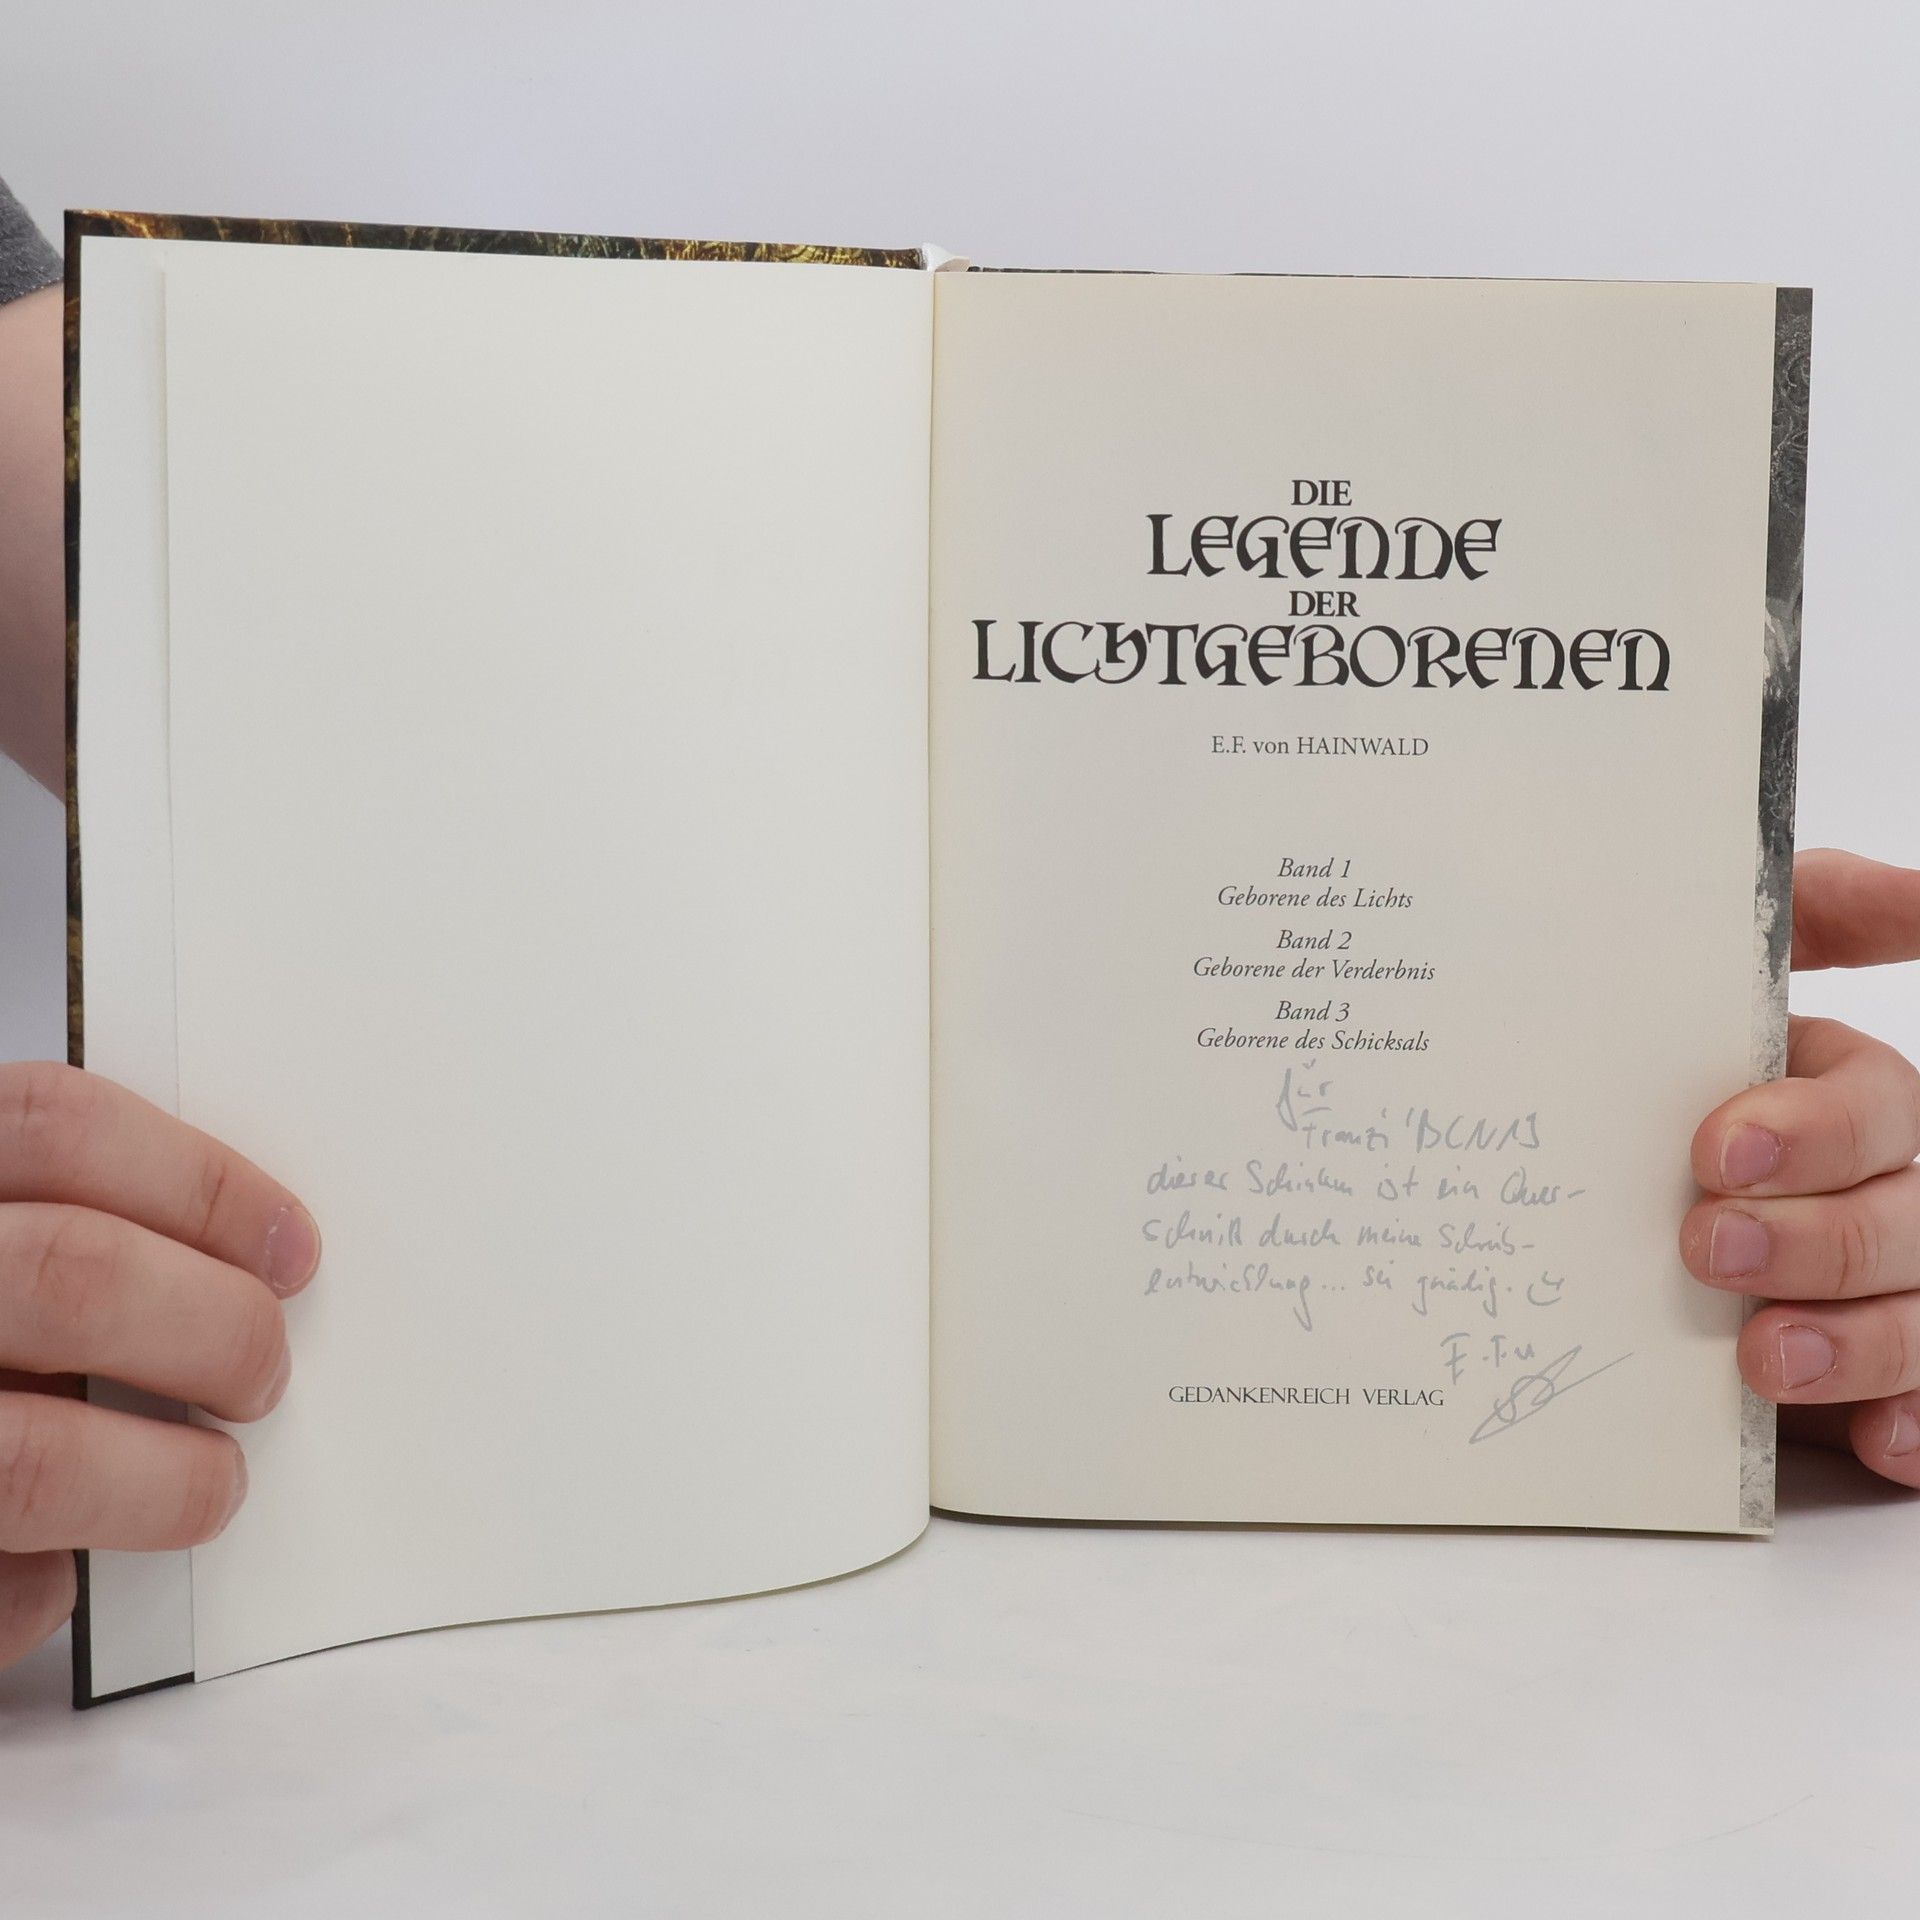 DIE
LEGENDE
DER
LICHTGEBORENEN
E.F. von HAINWALD
Band 1
Geborene des Lichts
Band 2
Geborene der Verderbnis
Band 3
Geborene des Schicksals
für
Franzi 'BCN19
dieser Schinken ist ein Quer-
schnitt durch meine Schreib-
entwicklung... sei gnädig.
GEDANKENREICH VERLAG